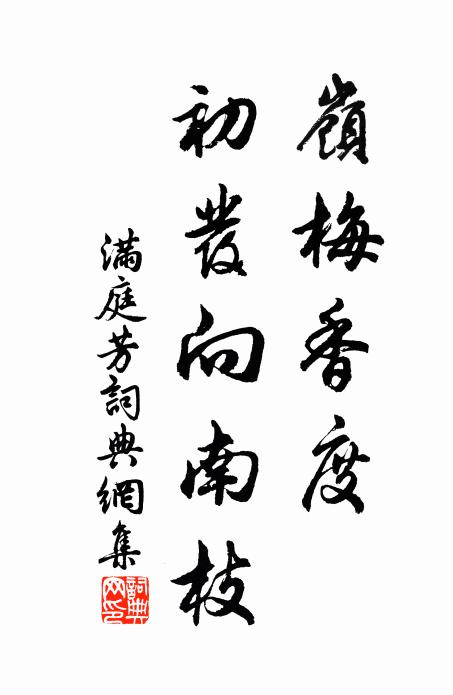 嶺梅香度
初發向南枝
滿庭芳詞典網集
詞典網印